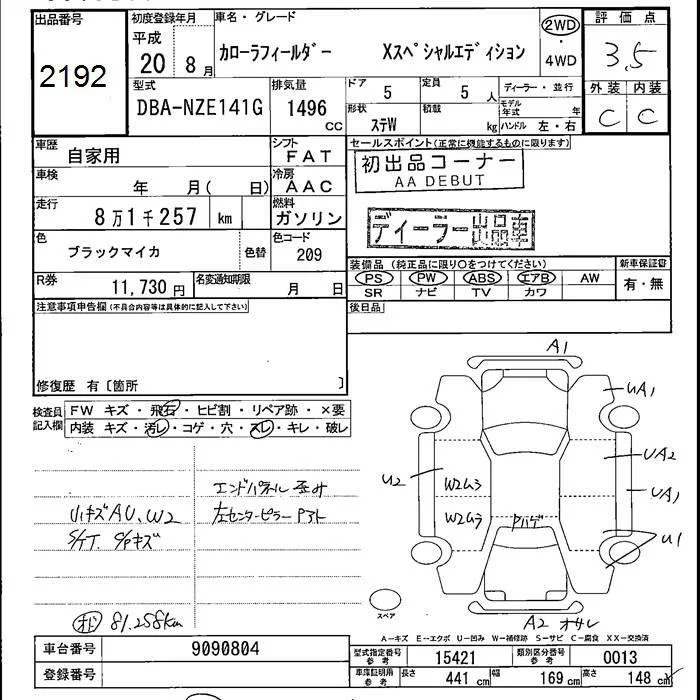 出品番号
2192
初度登録年月
平成
20 8月
車名・グレード
カローラフィールダー Xスペシャルエディション
2WD
・
4WD
評価点
3.5
外装 内装
C C
型式
DBA-NZE141G
排気量
1496
cc
ドア
5
定員
5 人
ディーラー・並行
形状
ステW
積載
kg
モデル年式
年
ハンドル 左・右
車歴
自家用
シフト
FAT
車検
年 月( 日)
冷房
AAC
走行
8万1千257 km
燃料
ガソリン
色
ブラックマイカ
色替
色コード
209
R券
11,730 円
名変通知期限
月 日
セールスポイント(正常に機能するものに限ります)
初出品コーナー
AA DEBUT
ディーラー出品車
装備品(純正品に限り○をつけてください)
新車保証書
PS PW ABS エアB AW
SR ナビ TV カワ
有・無
後日品
注意事項申告欄(不具合内容等は具体的に記入して下さい)
修復歴 有〔箇所 〕
検査員
記入欄
FW キズ・飛石・ヒビ割・リペア跡・×要
内装 キズ・汚レ・コゲ・穴・スレ・キレ・破レ
エンドパネル歪み
リハキズAU、W2
左センターピラー
S/T.
キズ
81.258km
A1
UA1
UA2
UA1
U1
U2
W2ムラ
W2ムラ
Pハゲ
A2 オサレ
スペア
A-キズ E-エクボ U-凹み W-補修跡 S-サビ C-腐食 XX-交換済
車台番号
9090804
登録番号
型式指定番号
参考
15421
類別区分番号
参考
0013
車庫証明用
参考
長さ
441 cm
幅
169 cm
高さ
148 cm